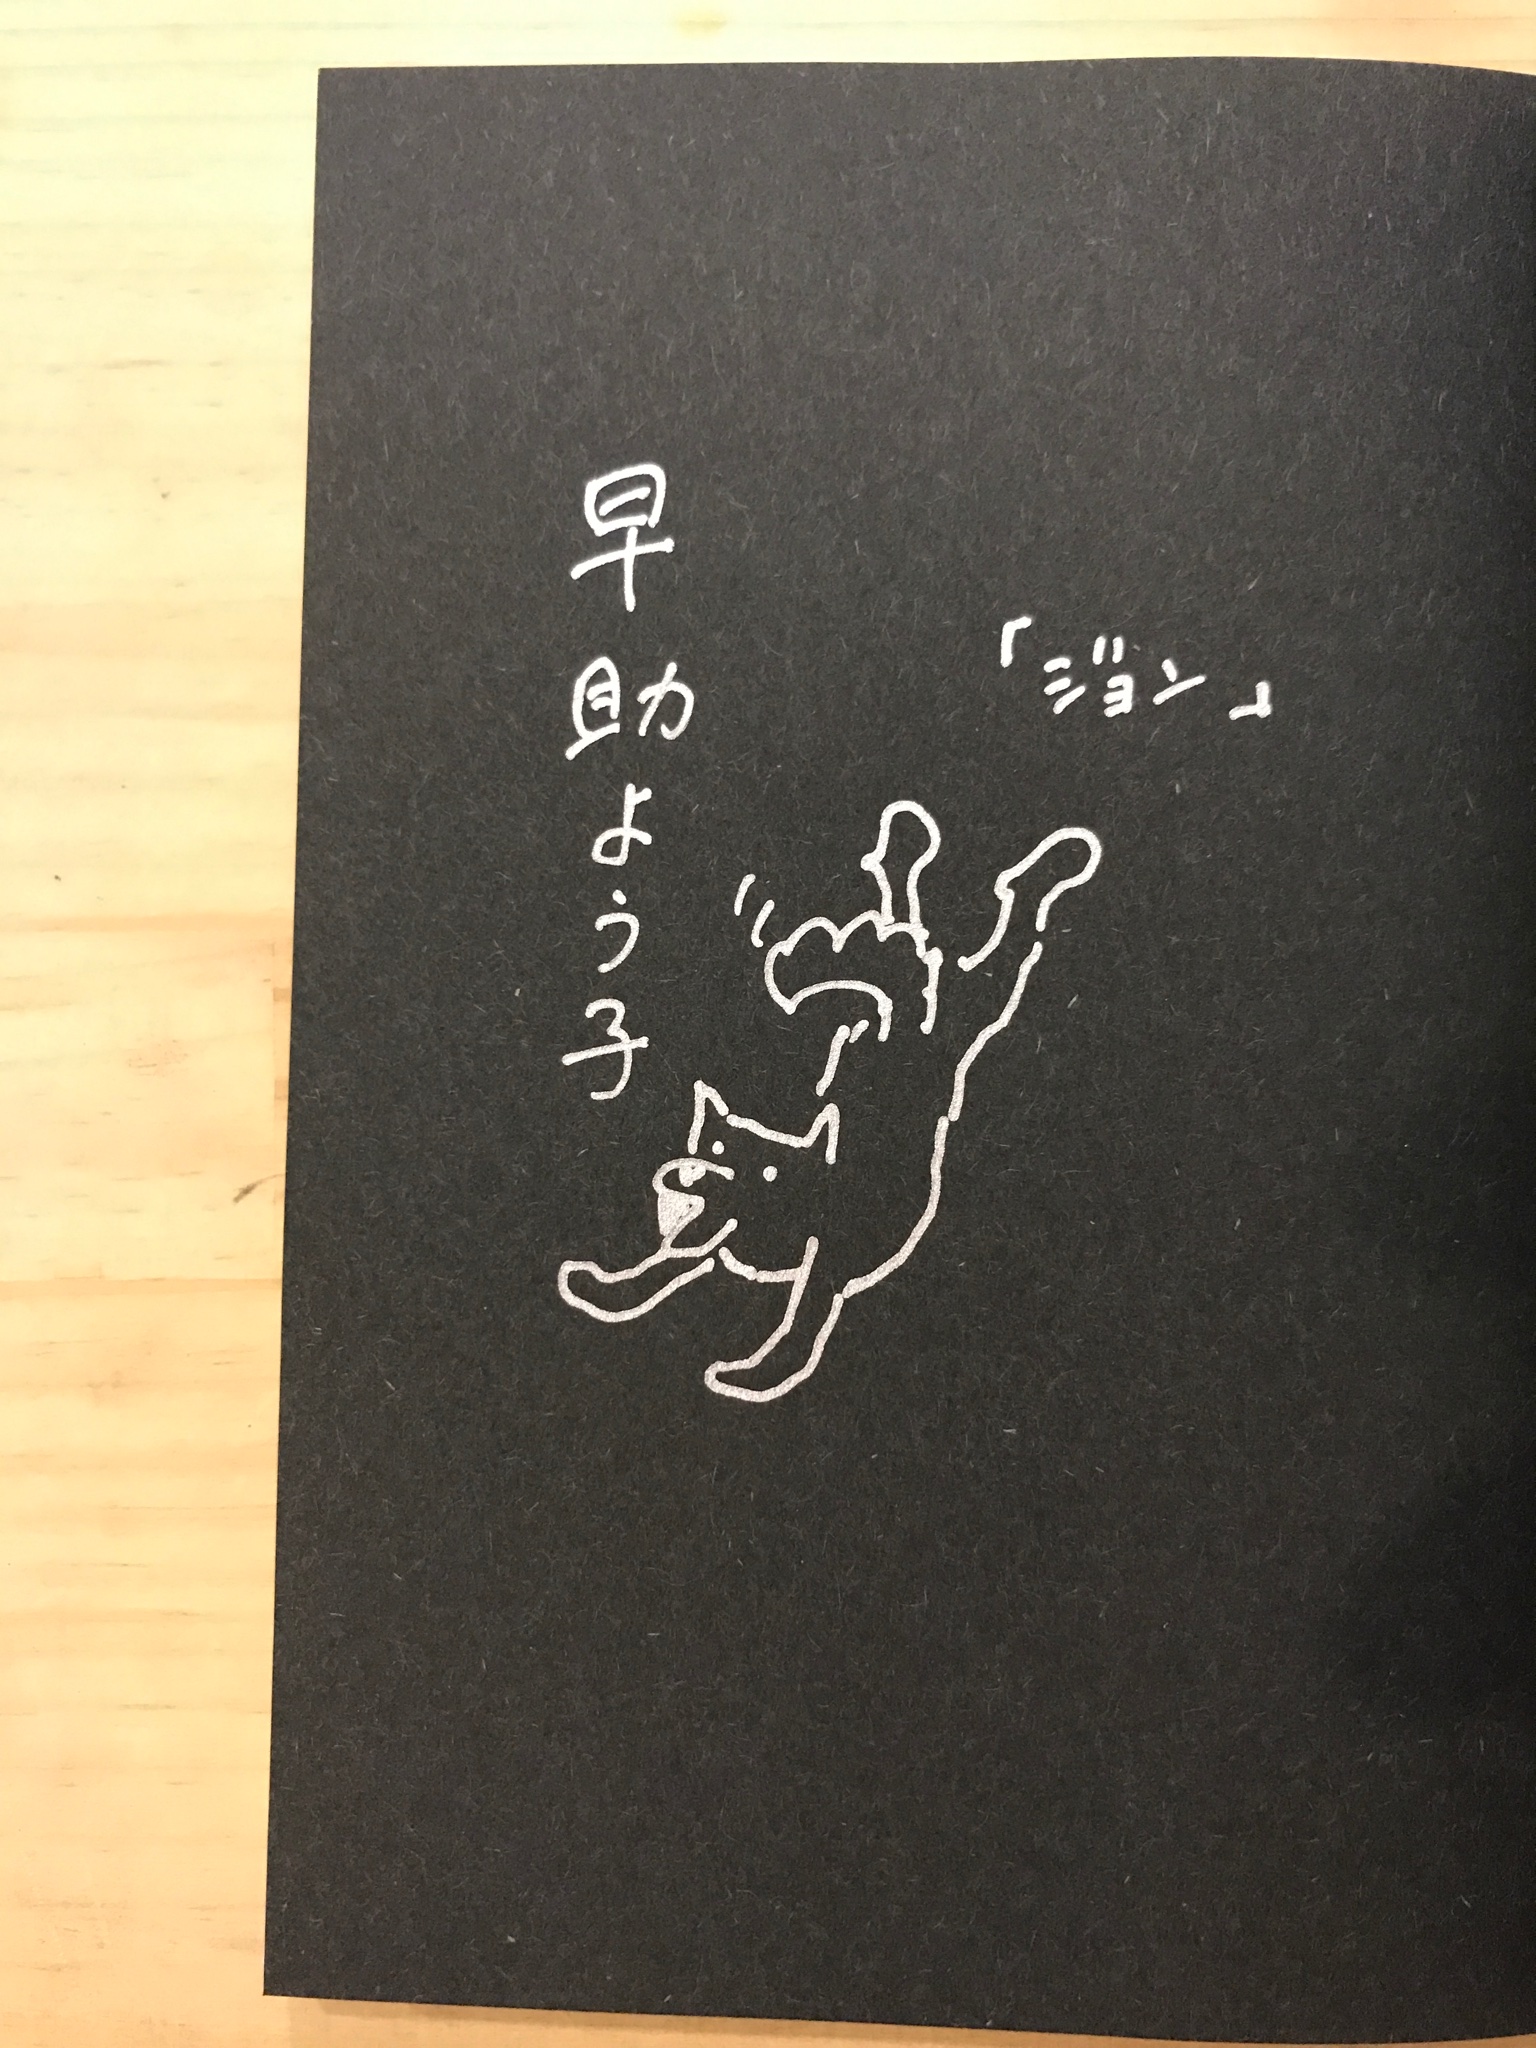 「ジョン」
早助よう子